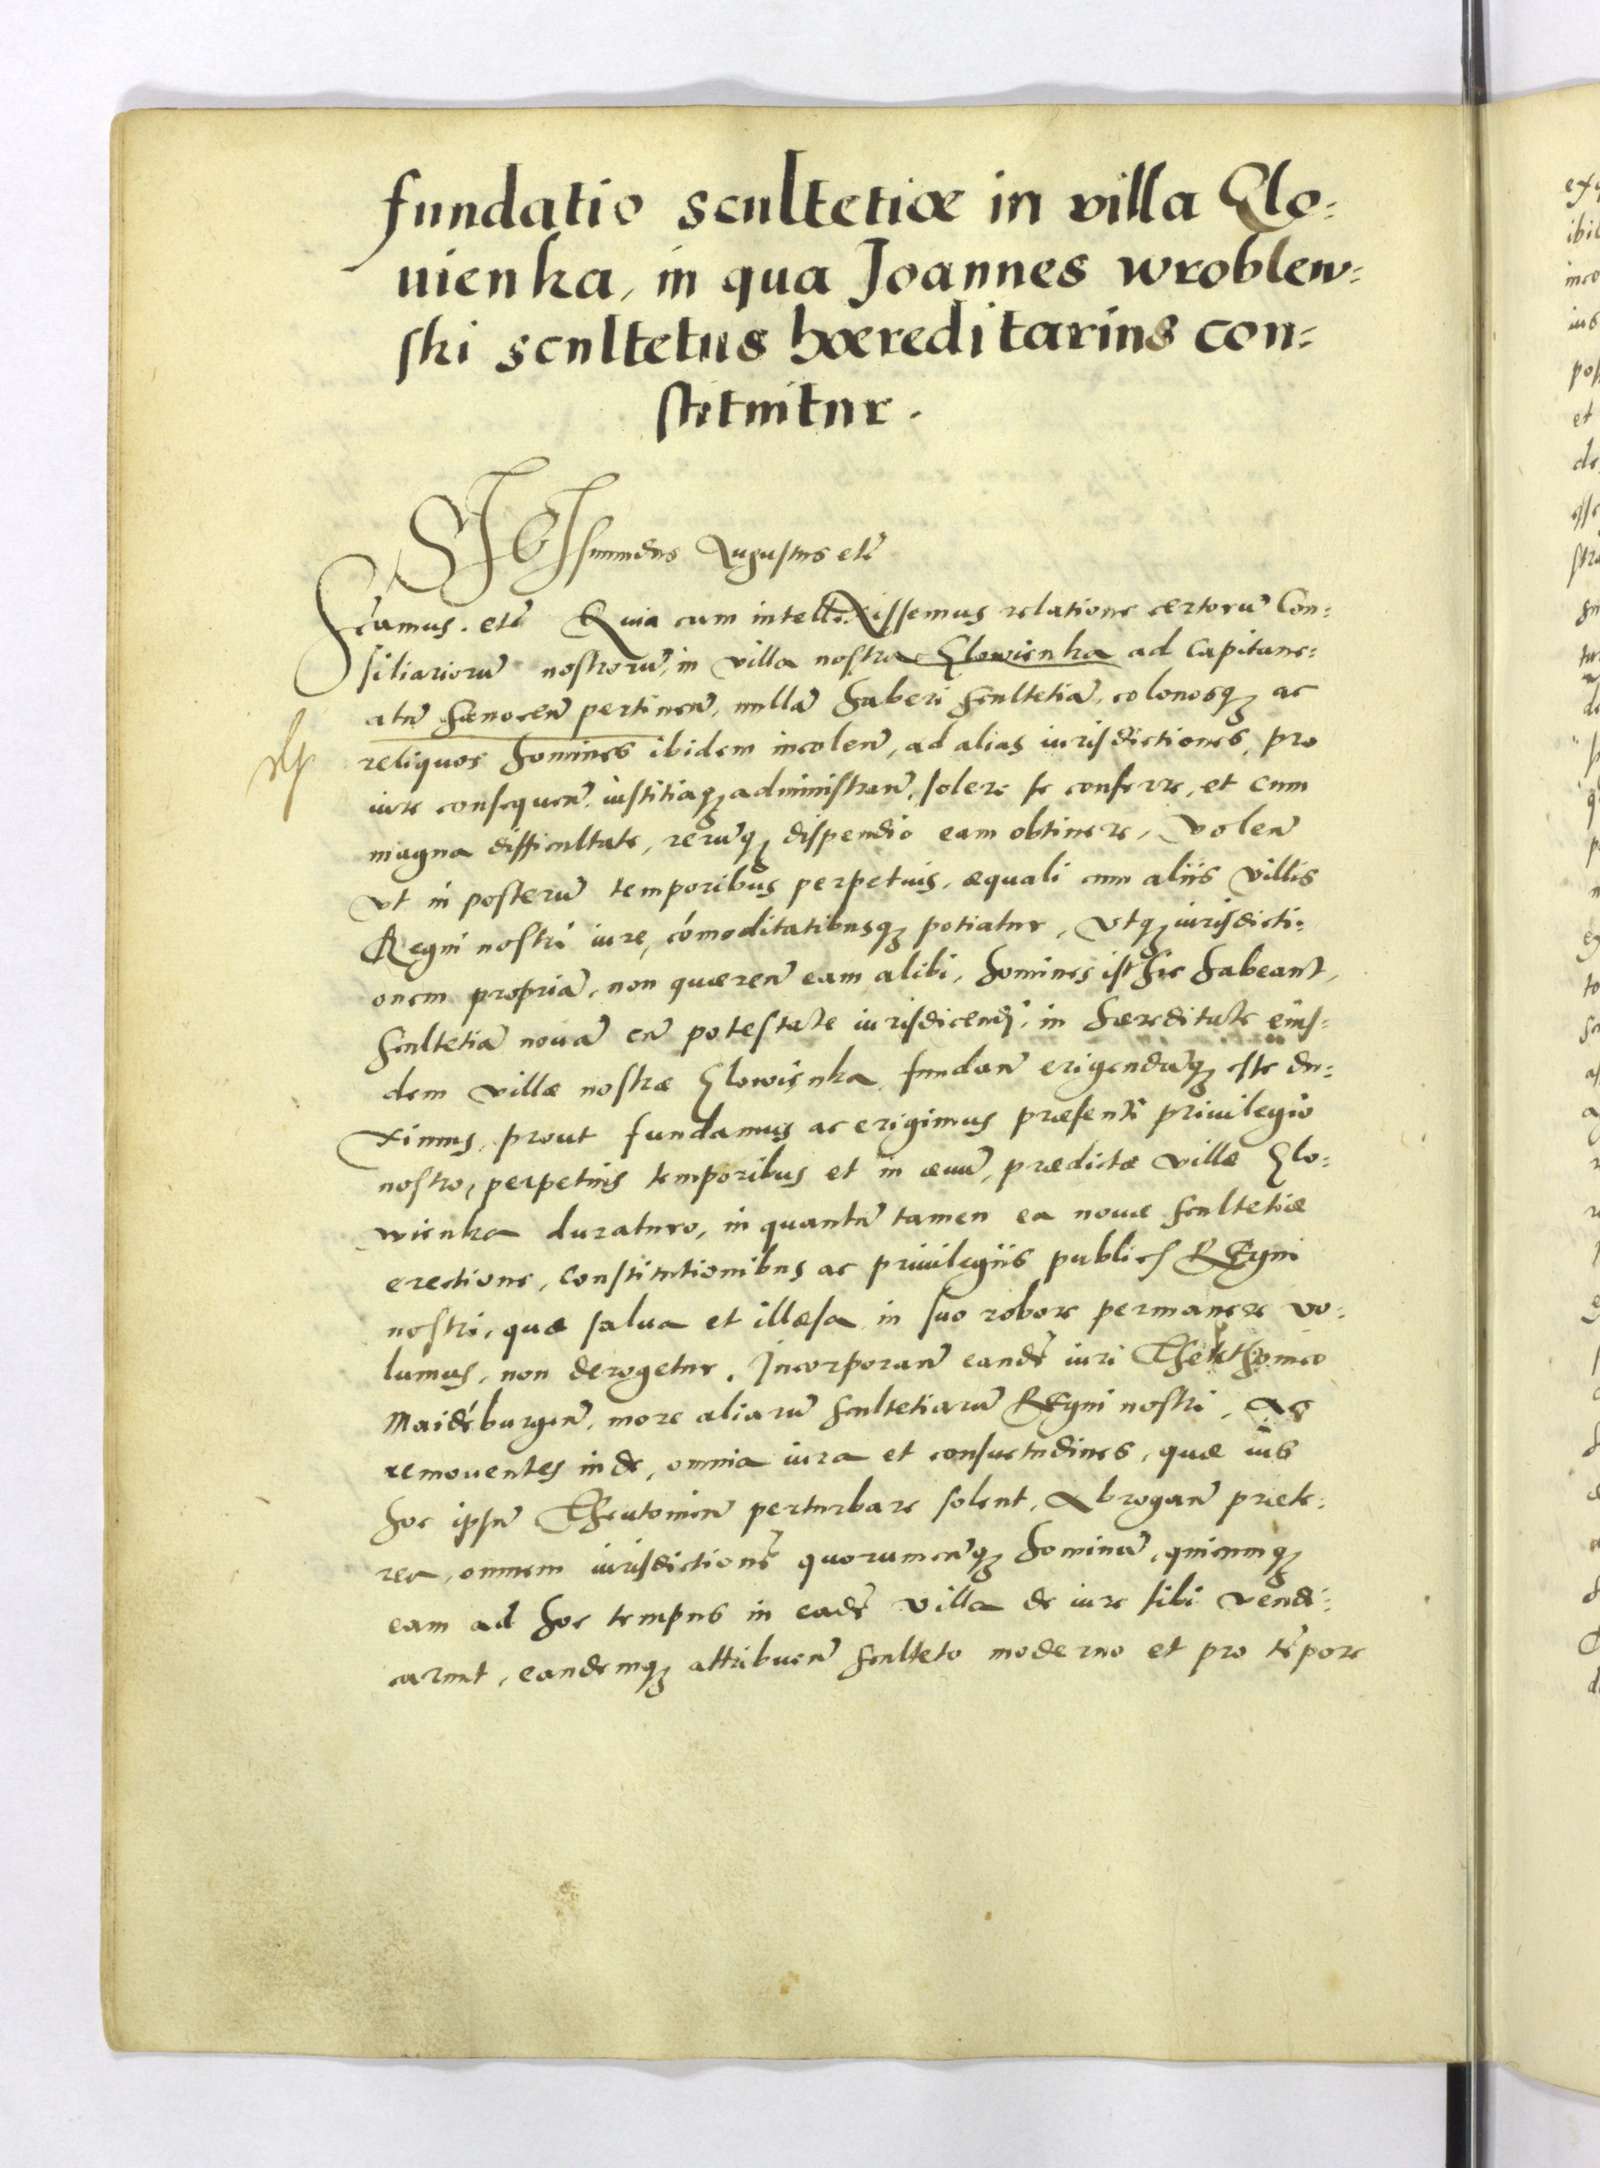 fundatio scultetiæ in villa Glo:
uienka, in qua Joannes wroblew:
ski scultetus hæreditarius con:
stituitur.
SIGIsmundus Augustus etĉ
Fc̄amus. etĉ Quia cum intellexissemus relatione certorū Con:
siliariorū nostrorū, in villa nostra Glowienka ad Capitane:
atū Sænocen̄ pertinen̄, nullā haberi scultetiā, colonosqꝫ ac
reliquos homines ibidem incolen̄, ad alias iurisdictiones, pro
iure consequen̄, iustitiaqꝫ administran̄, solere se conferre, et cum
magna difficultate, rerūqꝫ dispendio eam obtinere, Volen̄
Vt in posterū temporibus perpetuis, æquali cum aliis villis
Regni nostri iure, cōmoditatibusqꝫ potiatur, Vtqꝫ iurisdicti:
onem propriā, non quæren̄ eam alibi, homines isthic habeant,
scultetiā nouā cū potestate iurisdicendi, in hæreditate eius:
dem villæ nostræ Glowienka fundan̄ erigendāqꝫ esse du:
ximus, prout fundamus ac erigimus præsenti priuilegio
nostro, perpetuis temporibus et in æuū, prædictæ villæ Glo:
wienka duraturo, in quantū tamen ea nouæ scultetiæ
erectione, Constitutionibus ac priuilegiis publicis REgni
nostri, quæ salua et illæsa in suo robore permanere vo:
lumus, non derogetur. Incorporan̄ eandē iuri Thewthonico
Maidēburgen̄, more aliarū scultetiarū REgni nostri, Ac
remouentes inde, omnia iura et consuetudines, quæ ius
hoc ipsū Theutonicū perturbare solent, Abrogan̄ præte:
rea, omnem iurisdictionē quorumcūqꝫ hominū, quicunqꝫ
eam ad hoc tempus in eadē villa de iure sibi vendi:
carunt, eandemqꝫ attribuen̄ sculteto moderno et pro tēpore